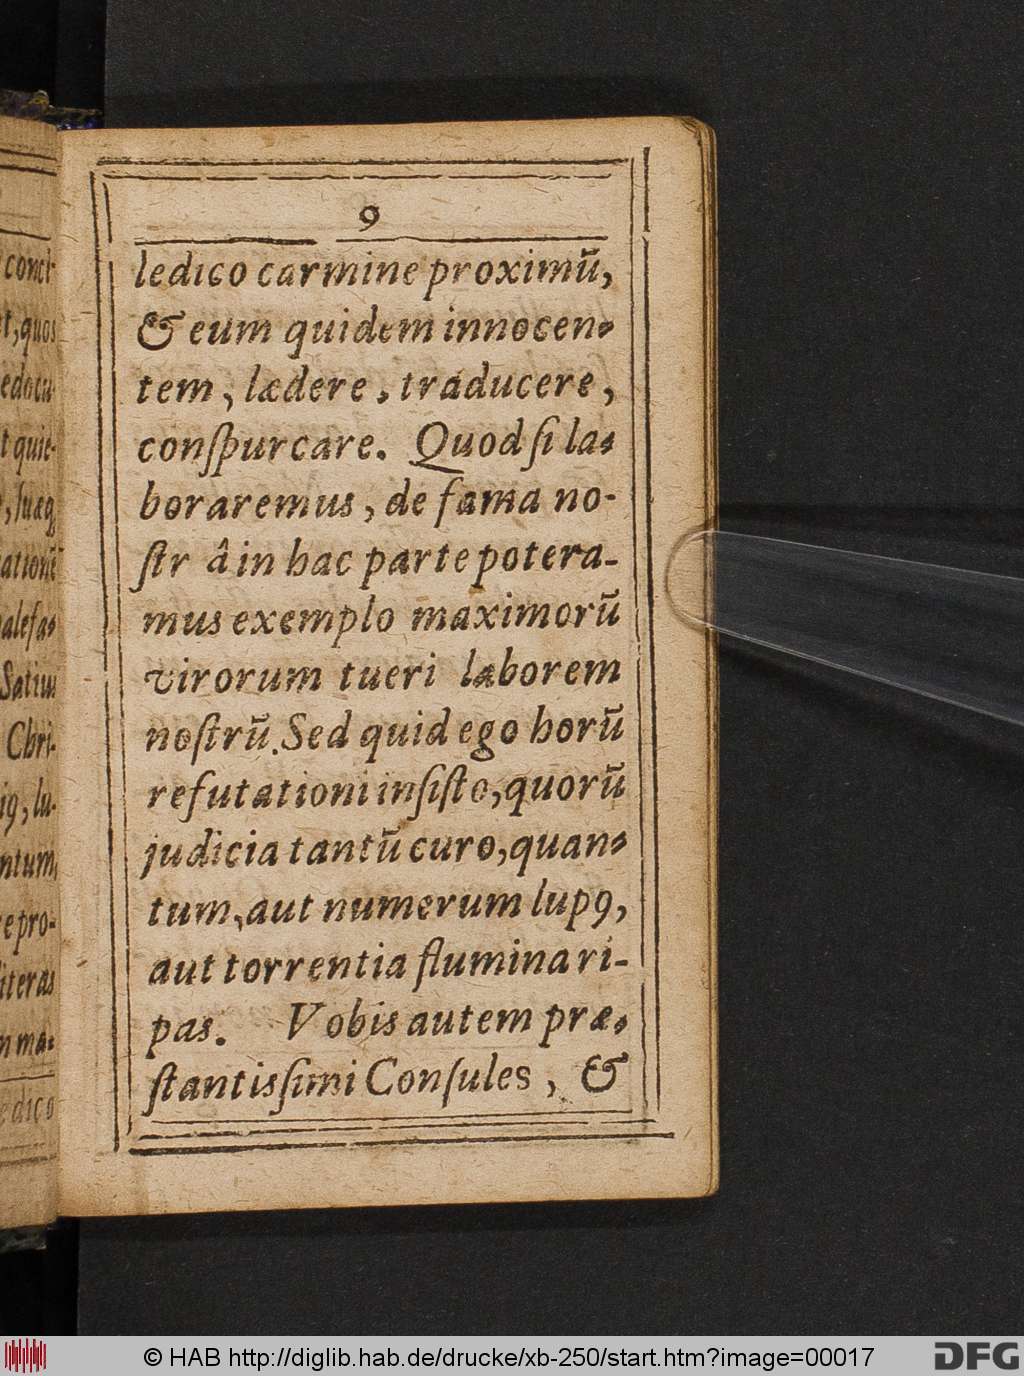 9
ledico carmine proximū,
& eum quidem innocen-
tem, lædere, traducere,
conſpurcare. Quod ſi la-
boraremus, de fama no-
ſtr â in hac parte potera-
mus exemplo maximorū
virorum tueri laborem
noſtrū. Sed quid ego horū
refutationi inſiſto, quorū
judicia tantū curo, quan-
tum, aut numerum lupꝰ,
aut torrentia flumina ri-
pas. Vobis autem præ-
ſtantisſimi Conſules, &
© HAB http://diglib.hab.de/drucke/xb-250/start.htm?image=00017
DFG